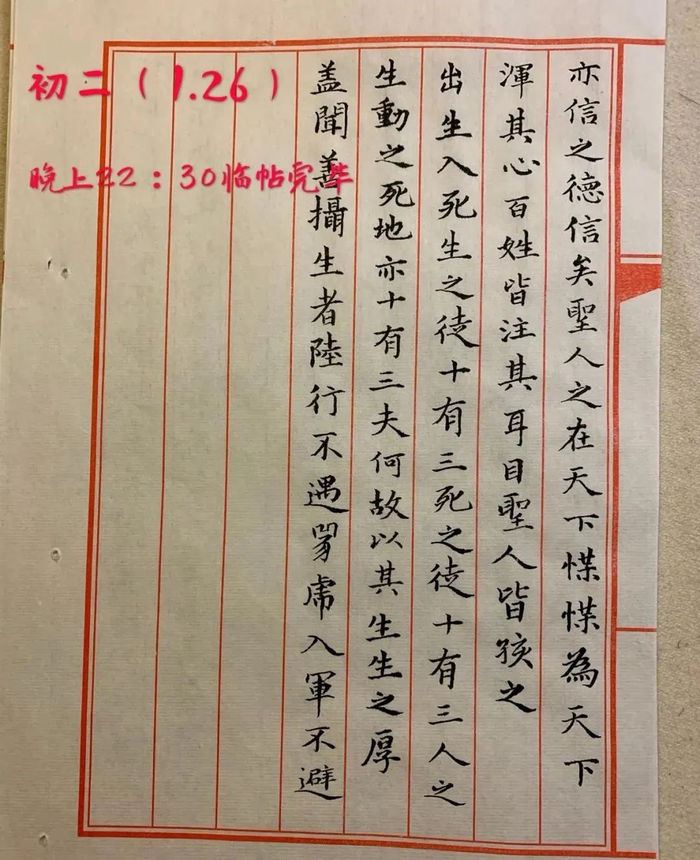 亦信之德信矣聖人之在天下惵惵為天下
渾其心百姓皆注其耳目聖人皆孩之
出生入死生之徒十有三死之徒十有三人之
生動之死地亦十有三夫何故以其生生之厚
盖聞善攝生者陸行不遇兕虎入軍不避
初二（1.26）
晚上22：30临帖完毕